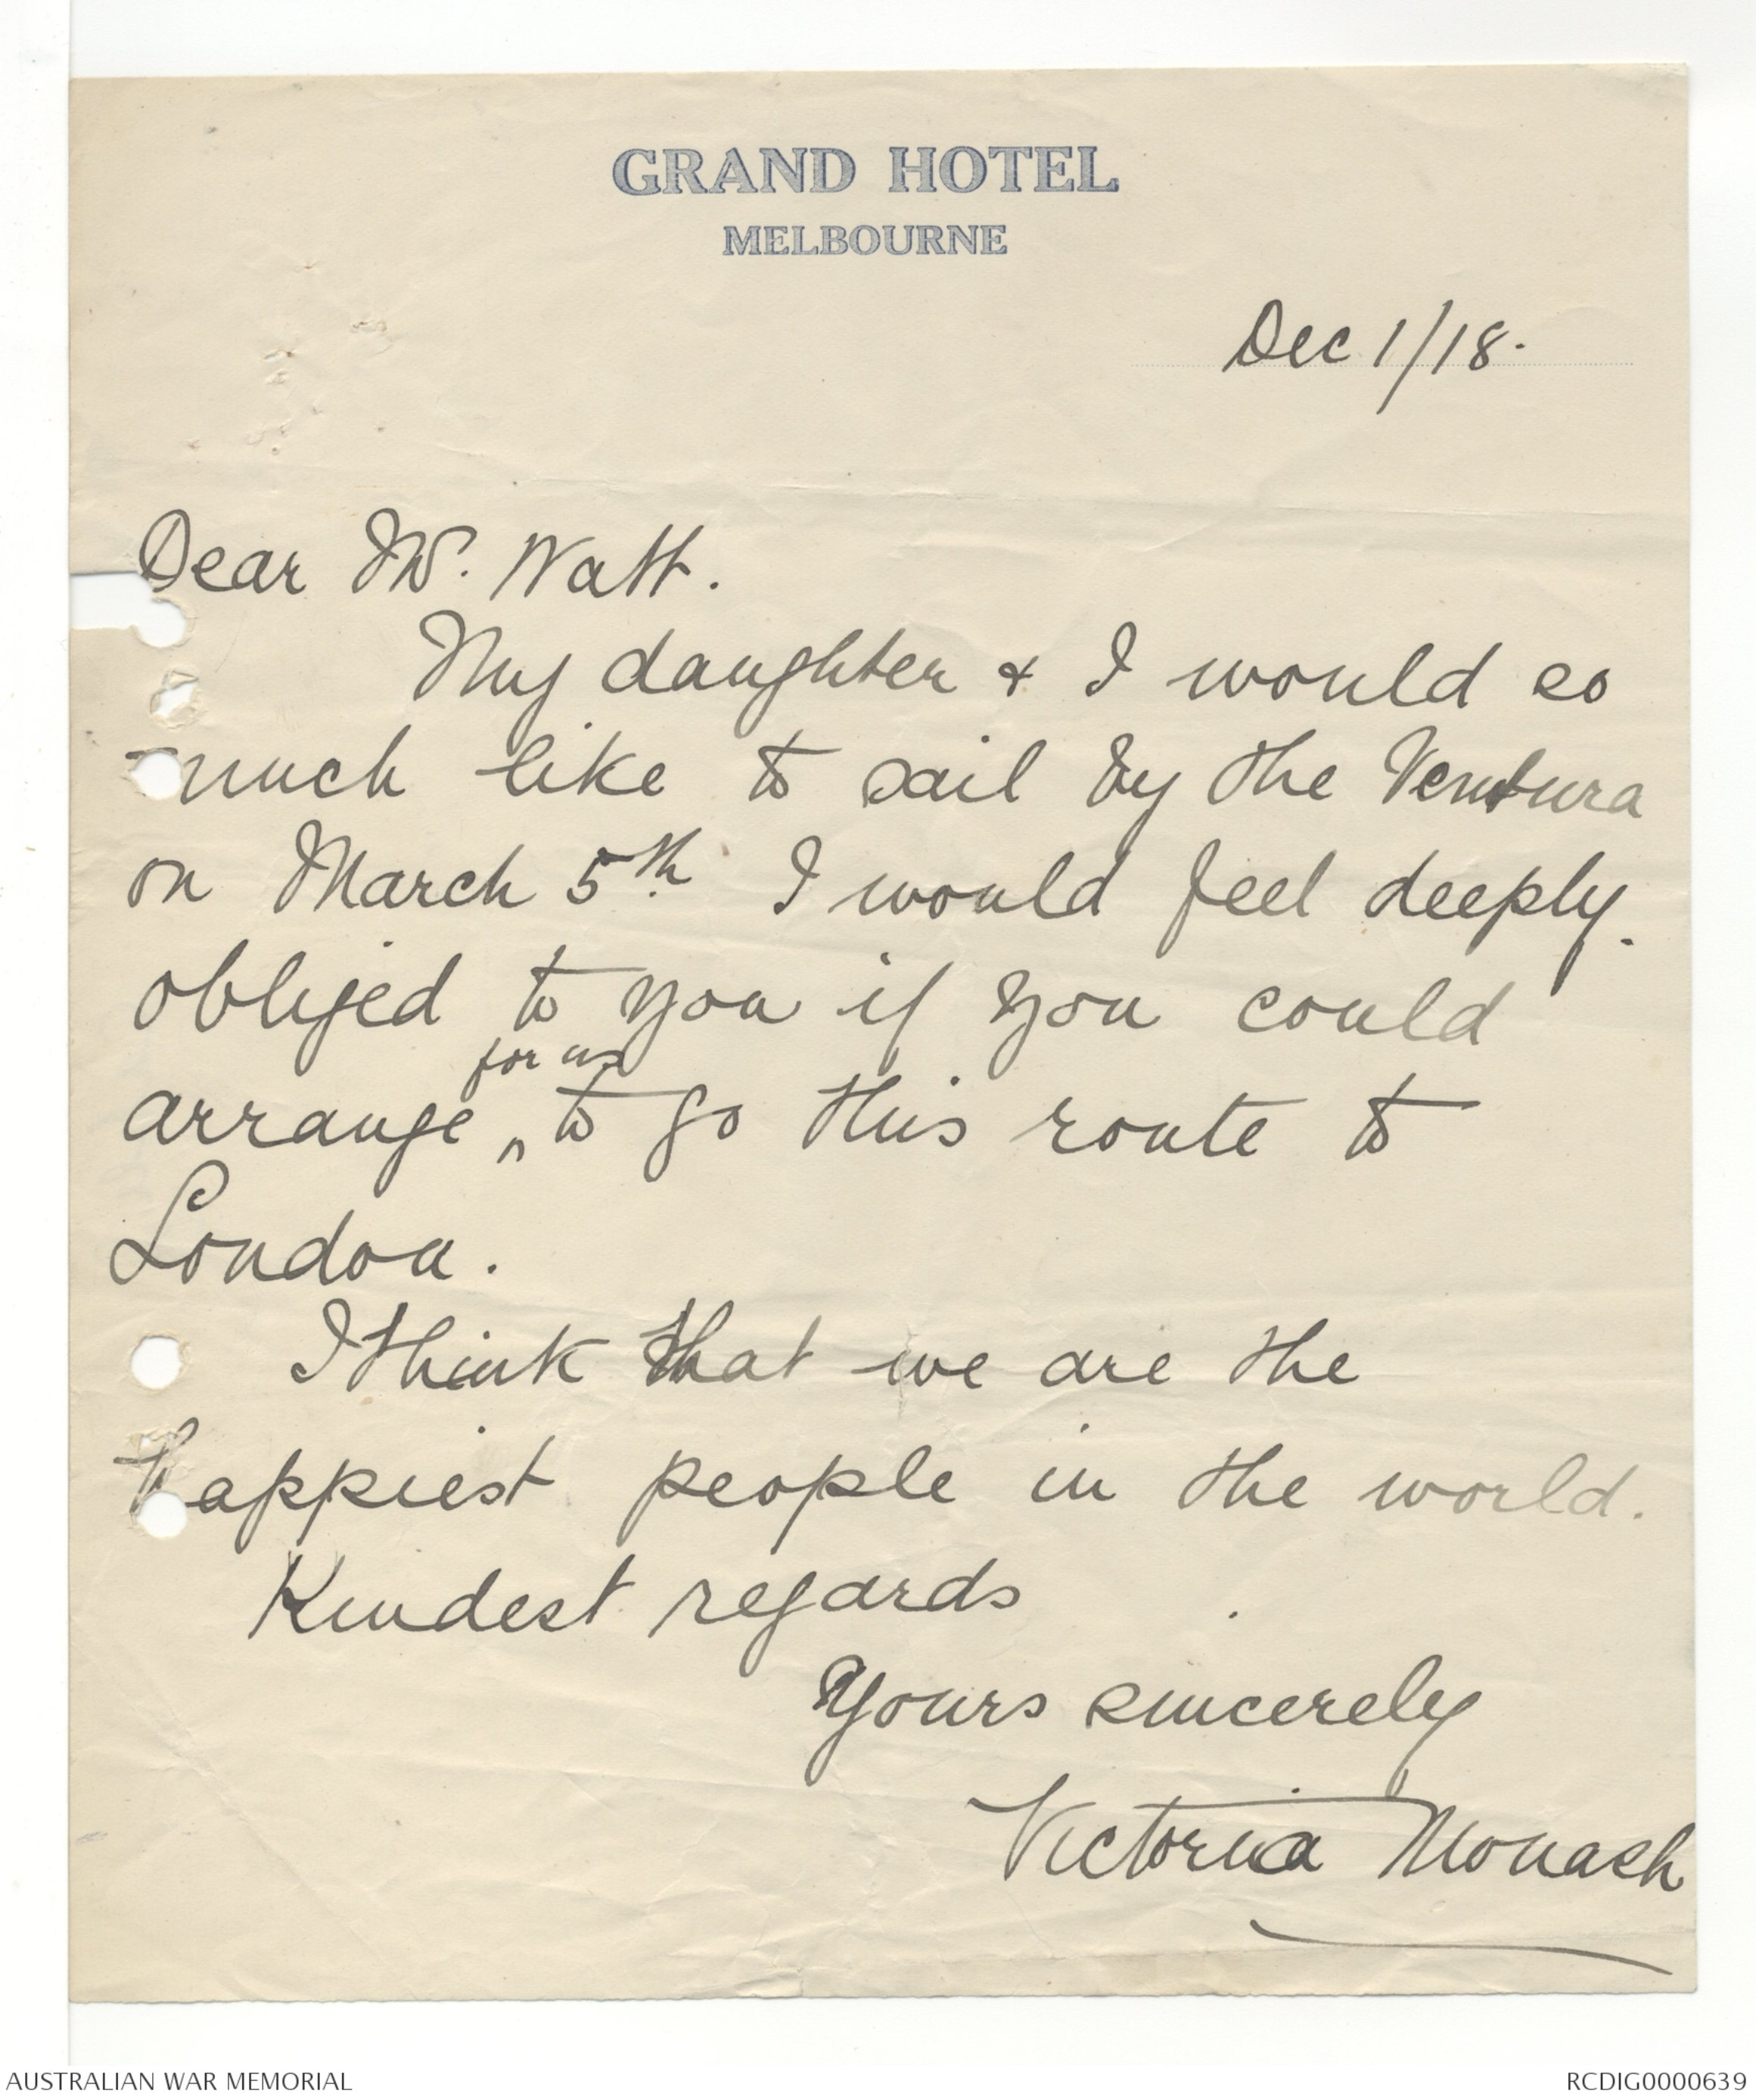 GRAND HOTEL
MELBOURNE
Dec 1/18.
Dear Mr. Watt.
My daughter & I would so
much like to sail by the Ventura
on March 5th. I would feel deeply.
obliged to you if you could
for us
arrange ^ to go this route to
London.
I think that we are the
happiest people in the world.
Kindest regards
Yours sincerely
Victoria Monash
AUSTRALIAN WAR MEMORIAL
RCDIG0000639